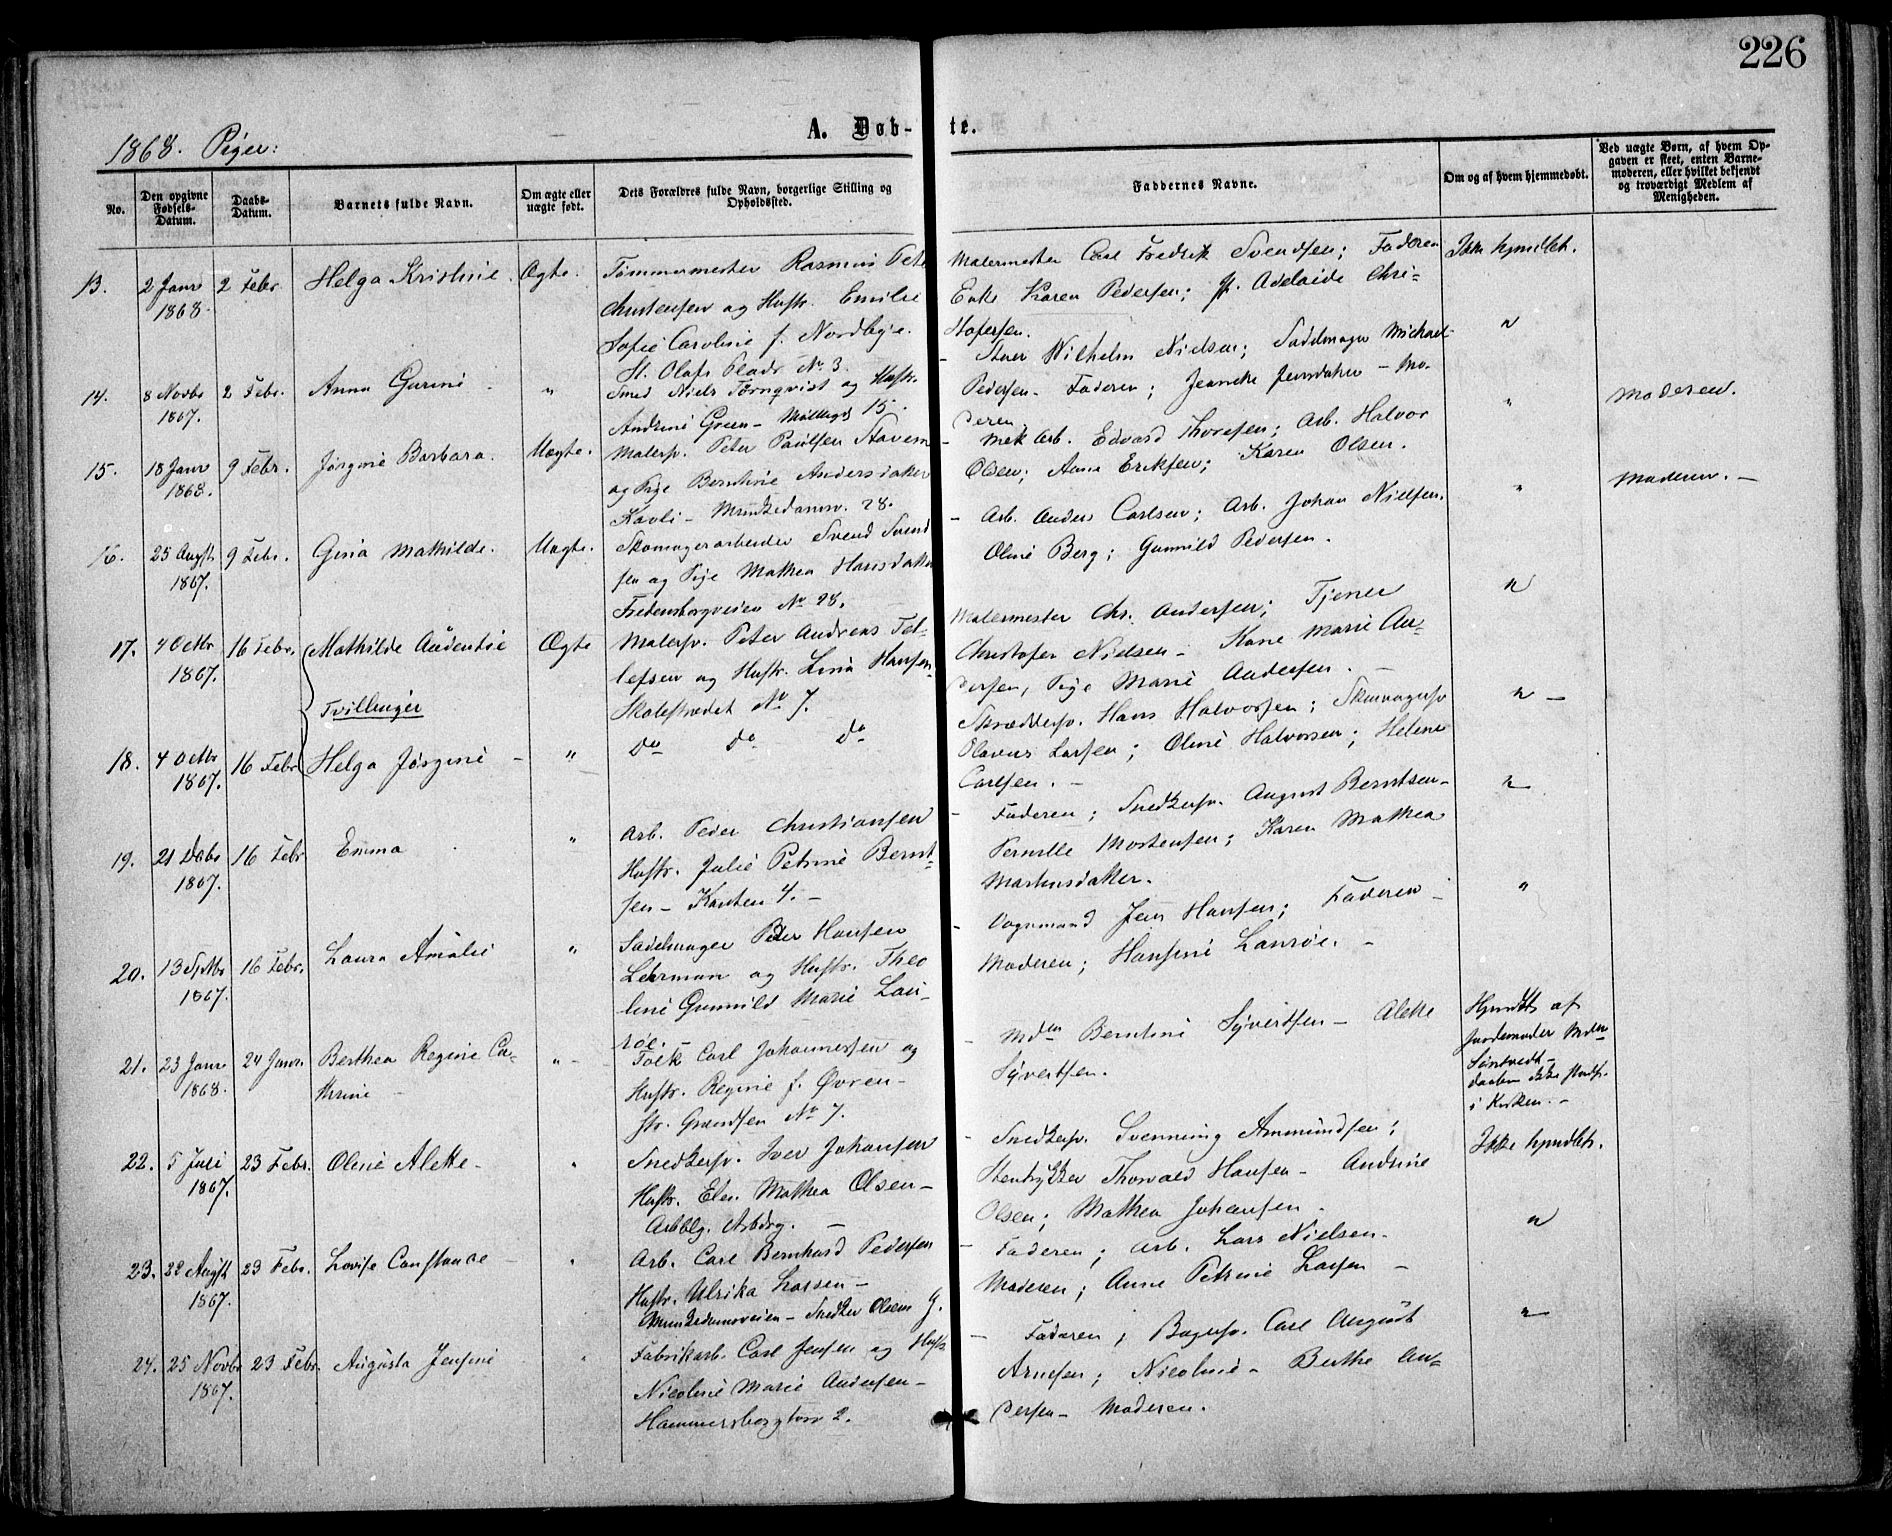 226
A. Døb-te.
1868. Piger:
No.
Den opgivne Fødsels-Datum.
Daabs-Datum.
Barnets fulde Navn.
Om ægte eller uægte født.
Dets Forældres fulde Navn, borgerlige Stilling og Opholdssted.
Faddernes Navne.
Om og af hvem hjemmedøbt.
Ved uægte Børn, af hvem Opgaven er skeet, enten Barnemoderen, eller hvilket bekjendt og troværdigt Medlem af Menigheden.
13. 2 Janr 1868. 2 Febr. Helga Kristine. Ægte.
Tømmermester Rasmus Pete
Christensen og Hustr. Emilie
Sofie Caroline f. Nordbye.
St. Olafs Plads No 3.
Malermester Carl Fredrik Svendsen; Faderen
Enke Karen Pedersen; Adelaide Chri-
stofersen.
Ikke hjmdbt.
14. 8 Novbr 1867. 2 Febr. Anna Gurine - "
Smed Niels Törnqvist og Hustr.
Andrine Green - Møllegd 15.
- Stuer Wilhelm Nielsen; Sadelmager Michael
Pedersen - Faderen; Jensdatter - Mo-
deren.
"
15. 18 Janr 1868. 9 Febr. Jørgine Barbara. Uægte.
Malersv. Peter Paulsen Stavem
og Pige Berntine Andersdatter
Kavli - Munkedamsv. 28.
- Mek Arb. Edvard Thoresen; Arb. Halvor
Olsen; Anna Eriksen; Karen Olsen.
"
Moderen.
16. 25 Augst. 1867. 9 Febr. Gina Mathilde. Uægte.
Skomagerarbeider Svend Svend
sen og Pige Mathea Hansdatter
Fredensborgveien No 28.
- Arb. Anders Carlsen; Arb. Johan Nielsen.
Oline Berg; Gunnild Pedersen.
"
Moderen. -
17. 4 Octbr 1867. 16 Febr. Mathilde Audentie Ægte
Malersv. Peter Andreas Tel-
lefsen og Hustr. Lina Hansen
Skolestrædet No 7.
Malermester Chr. Andersen; Tjener
Christofer Nielsen - Kane Marie An-
dersen, Pige Marie Andersen. -
"
Tvillinger
18. 4 Octbr 1867. 16 Febr Helga Jørgine - "
Do Do Do
Skræddersv. Hans Halvorsen; Skomagersv
Olavus Larsen; Oline Halvorsen; Helene
Carlsen. -
" -
19. 21 Debr 1867. 16 Febr Emma "
Arb. Peder Christiansen
Hustr. Julie Petrine Bernt-
sen - Kanten 4. -
- Faderen; Snedkersv. August Berntsen -
Pernille Mortensen; Karen Mathea
Martinsdatter.
"
20. 13 1867. 16 Febr. Laura Amalie "
Sadelmager Peder Hansen
Lehrman og Hustr. Theo
line Gunnild Marie Lau-
røe. -
- Vognmand Jens Hansen; Faderen -
Moderen; Hansine Laurøe. -
"
21. 23 Janr 1868. 24 Janr. Berthea Regine Ca-
thrine - " -
Tolk Carl Johannessen og
Hustr. Regine f. Øvren -
str. Grændsen No 7.
- Mdm Berntine Syvertsen - Alette
Syvertsen.
Hjmdbt af
Jordemoder Mdm
-
daaben ikke stadf.
i Kirken. -
22. 5 Juli 1867. 23 Febr. Oline Alette. "
Snedkersv. Iver Johansen
Hustr. Elen Mathea Olsen -
Arbblg. Arbdrg. -
- Snedkersv. Svenning Ammundsen;
Stentrykker Thorvald Hansen - Andrine
Olsen; Mathea Johansen.
Ikke hjmdbt.
23. 22 Augst 1867. 23 Febr. Lovise Constance - "
Arb. Carl Bernhard Pedersen
Hustr. Ulrika Larsen -
Munkedamsveien - Snedker Olsens G.
- Faderen; Arb. Lars Nielsen -
Moderen; Anne Petrine Larsen -
"
24. 25 Novbr 1867. 23 Febr. Augusta Jensine "
Fabrikarb. Carl Jensen og Hustr
Nicoline Marie Andersen -
Hammersborgtorv 2.
- Faderen; Bagersv. Carl August
Arnesen; Nicoline - Berthe An-
dersen - Moderen.
"